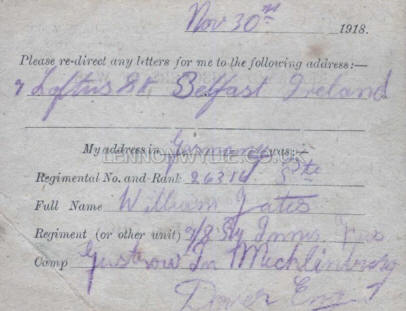 Nov 30th 1918.
Please re-direct any letters for me to the following address:—
7 Loftus St Belfast Ireland
My address in Germany was:—
LENNONWYLIE.CO.UK
Regimental No. and Rank 26316 Pte
Full Name William Yates
Regiment (or other unit) 7/8 Ry Innis Fus
Camp Gustrow In Mecklinburg
Dover Eng